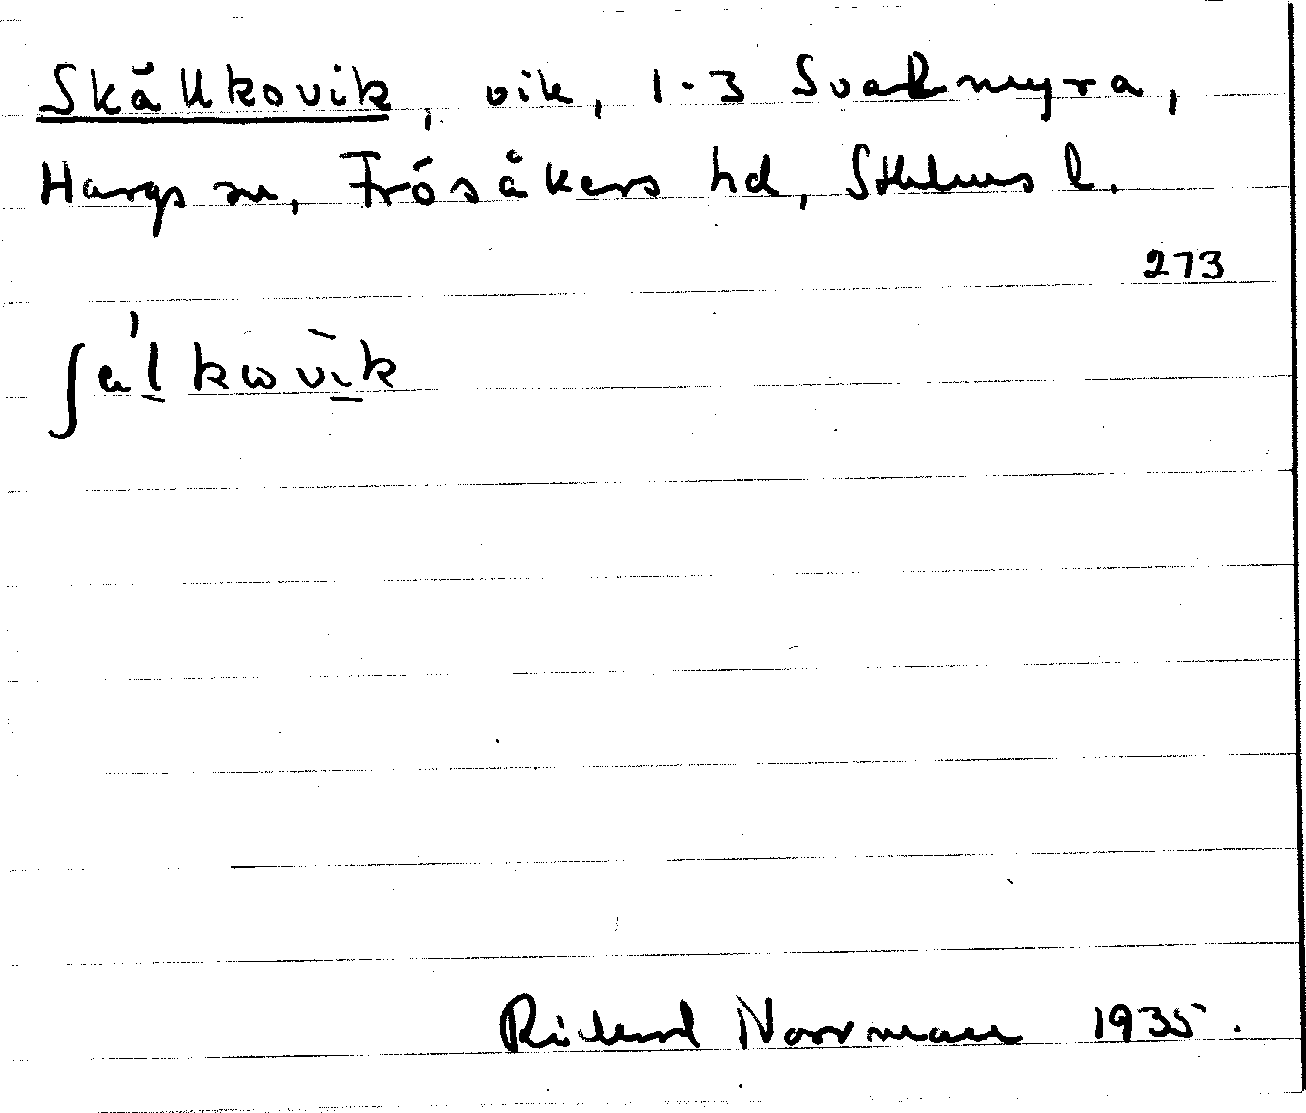 Skällkovik, vik, 1-3 Svartmyra,
Hargs sn, Frösåkers hd, Sthlms l.
273
ʃäl kωvik
Richard Norrman 1935.